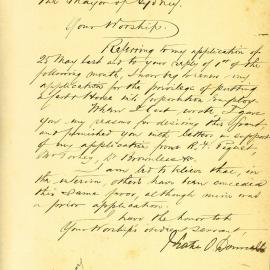 The Mayor of Sydney.
Your Worship,
Referring to my application of
25 May last and to your reply of 1st of the
following month, I now beg to renew my
application for the privilege of putting
a Cart & Horse in Corporation employ.
When I wrote I gave
you my reasons for desiring this
and furnished you with letters in support
of my application from R.
I am led to believe that, in
the interim, others have been conceded
this same favor, although mine was
a prior application.
I have the honor to be
Your Worship's obedient servant,